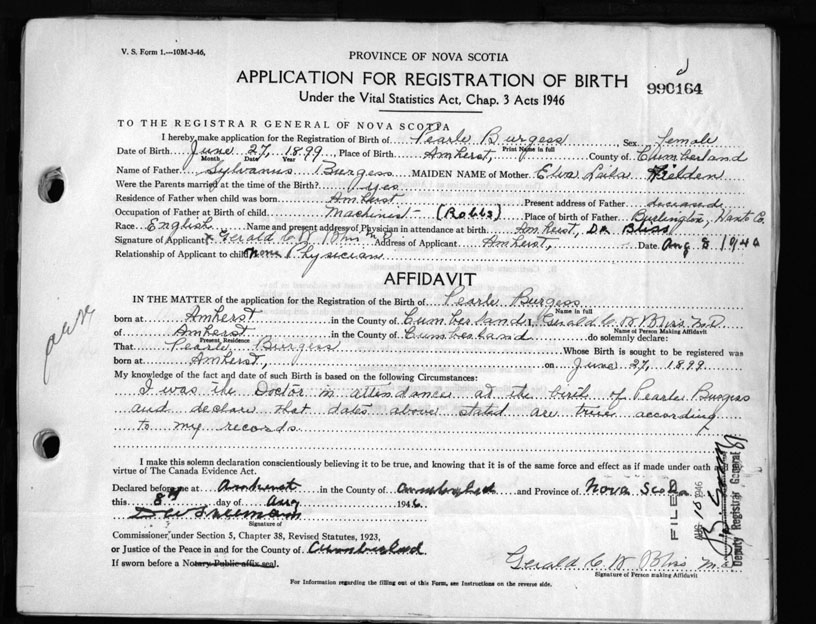 V. S. Form 1.—10M-3-46,
PROVINCE OF NOVA SCOTIA
APPLICATION FOR REGISTRATION OF BIRTH
990164
Under the Vital Statistics Act, Chap. 3 Acts 1946
TO THE REGISTRAR GENERAL OF NOVA SCOTIA
I hereby make application for the Registration of Birth of Pearle Burgess Sex female
Print Name in full
Date of Birth June 27, 1899 Place of Birth Amherst, County of Cumberland
Month Date Year
Name of Father Sylvanus Burgess MAIDEN NAME of Mother Eliza Fielden
Were the Parents married at the time of the Birth? yes
Residence of Father when child was born Amherst Present address of Father
Occupation of Father at Birth of child Machinist — (Robbs) Place of birth of Father Burlington, Hants Co.
Race English Name and present address of Physician in attendance at birth Amherst, Dr Bliss
Signature of Applicant Gerald C W Bliss M D Address of Applicant Amherst, Date Aug 8 1946
Relationship of Applicant to child none Physician
AFFIDAVIT
IN THE MATTER of the application for the Registration of the Birth of Pearle Burgess
Name in full
born at Amherst in the County of Cumberland I, Gerald C. W. Bliss M.D.
Name of Person Making Affidavit
of Amherst in the County of Cumberland do solemnly declare:
Present Residence
That Pearle Burgess Whose Birth is sought to be registered was
born at Amherst, on June 27, 1899
My knowledge of the fact and date of such Birth is based on the following Circumstances:
I was the Doctor in attendance at the birth of Pearle Burgess
and declare that dates above stated are true according
to my records.
I make this solemn declaration conscientiously believing it to be true, and knowing that it is of the same force and effect as if made under oath and
virtue of The Canada Evidence Act.
Declared before me at Amherst in the County of Cumberland and Province of Nova Scotia
this 8th day of Aug 1946
Signature of
Commissioner under Section 5, Chapter 38, Revised Statutes, 1923,
or Justice of the Peace in and for the County of Cumberland
If sworn before a Notary Public affix seal.
Gerald C W Bliss M.D.
Signature of Person making Affidavit
FILED AUG 10 1946
Deputy Registrar General
For Information regarding the filling out of this Form, see Instructions on the reverse side.